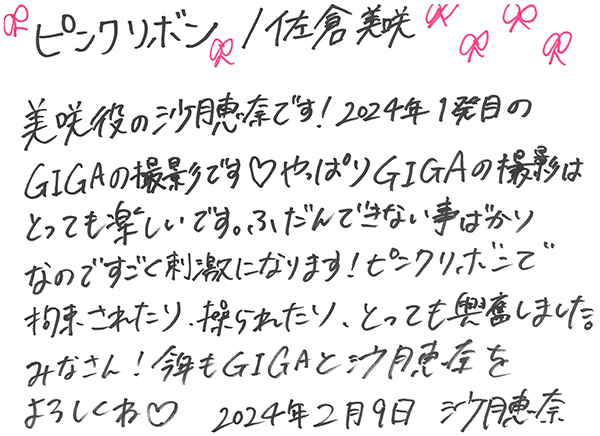 ピンクリボン/佐倉美咲
美咲役の沙月恵奈です!2024年1発目の
GIGAの撮影です♡やっぱりGIGAの撮影は
とっても楽しいです。ふだんできない事ばかり
なのですごく刺激になります!ピンクリボンで
拘束されたり、操られたり、とっても興奮しました。
みなさん!今年もGIGAと沙月恵奈を
よろしくね♡ 2024年2月9日 沙月恵奈